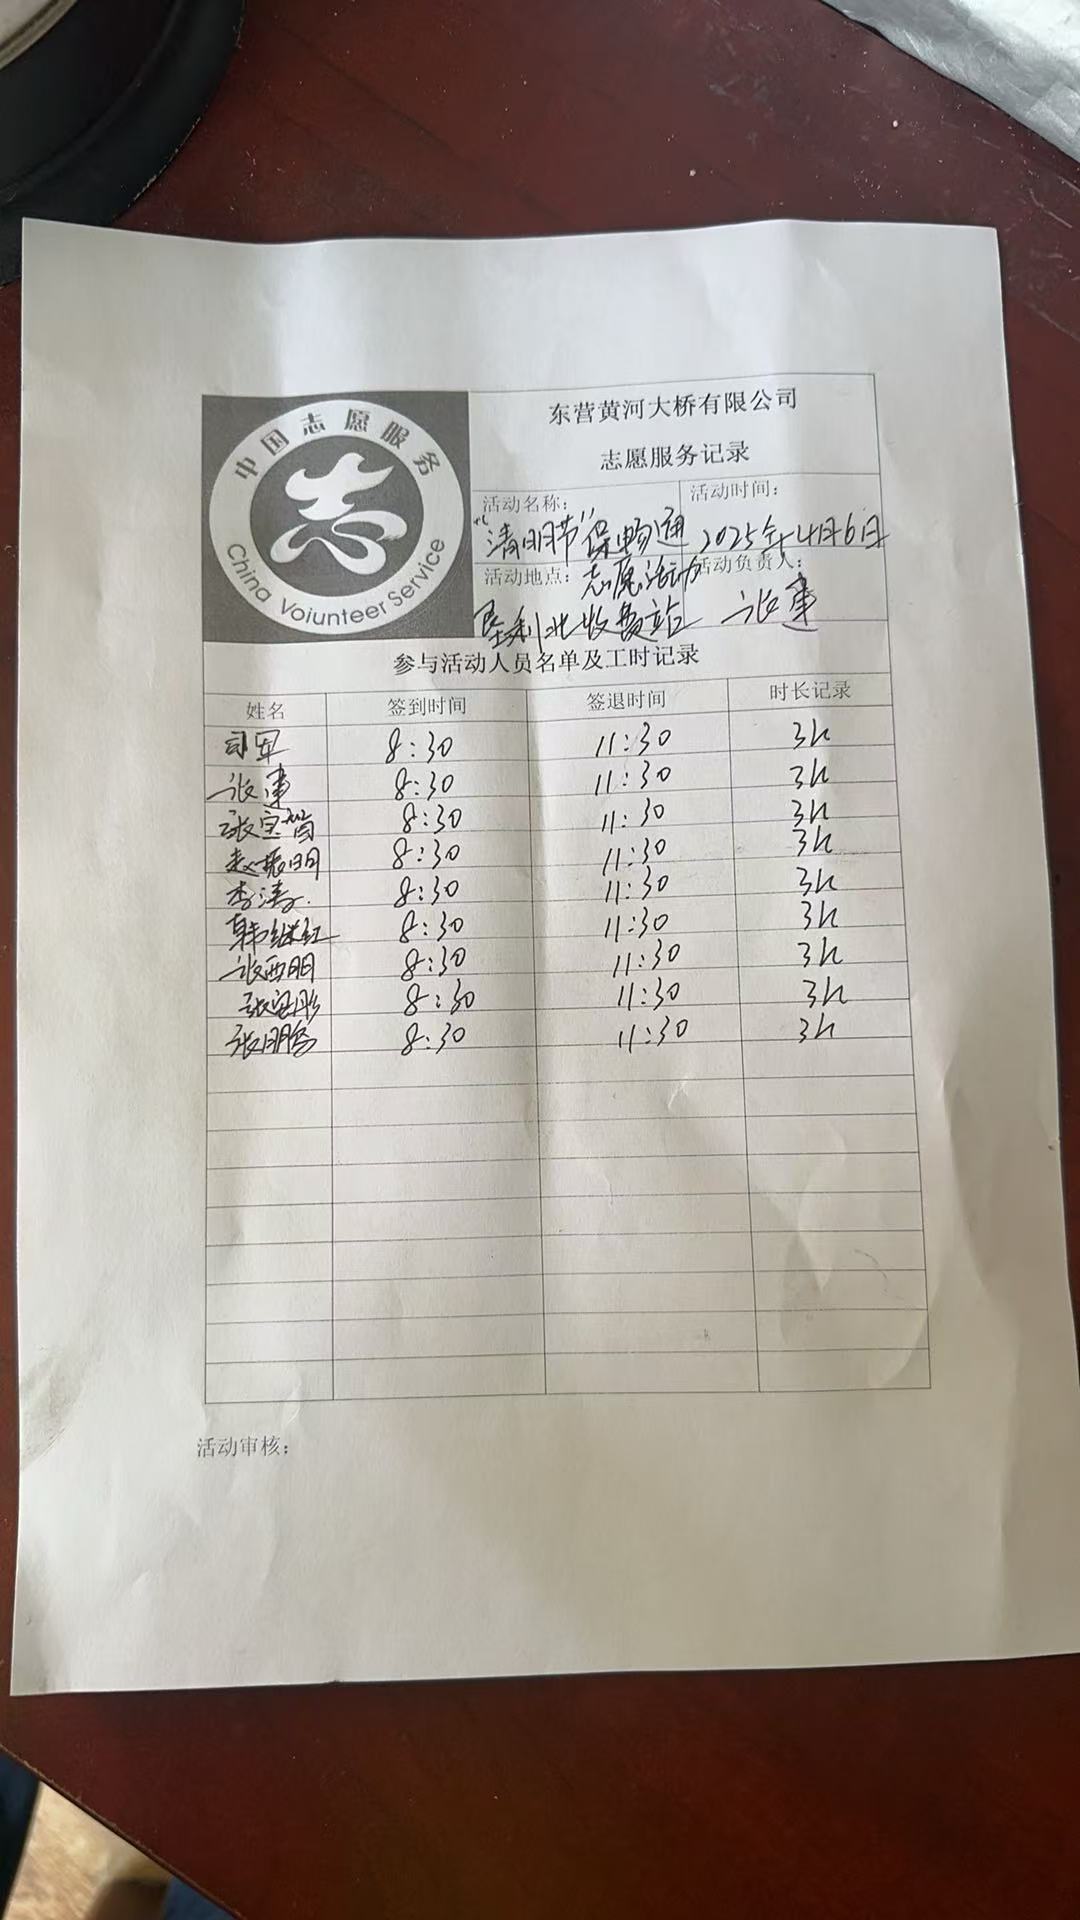 中国志愿服务
China Voiunteer Service
东营黄河大桥有限公司
志愿服务记录
活动名称： 活动时间：
“清明节”保畅通 2025年4月6日
活动地点： 志愿活动 活动负责人：
垦利北收费站 张建
参与活动人员名单及工时记录
姓名 签到时间 签退时间 时长记录
司军 8:30 11:30 3h
张建 8:30 11:30 3h
张宝 8:30 11:30 3h
赵振明 8:30 11:30 3h
李涛 8:30 11:30 3h
韩继红 8:30 11:30 3h
张西明 8:30 11:30 3h
张宝彤 8:30 11:30 3h
张明 8:30 11:30 3h
活动审核：